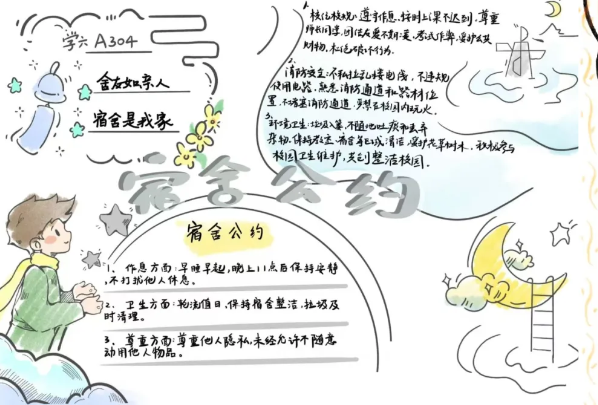 学六A304
舍友如亲人
宿舍是我家
1. 校纪校规：遵守作息，按时上课不迟到，尊重
师长同学，团结友爱不
财物，
2. 消防安全：不私拉乱接电线，不违规
使用电器，熟悉消防通道和器材位
置，不堵塞消防通道，严禁在校园内玩火。
3. 环境卫生：垃圾入篓，不随地吐痰和丢弃
杂物，保持教室、宿舍等区域清洁，爱护花草树木，积极参与
校园卫生维护，共创整洁校园。
宿舍公约
宿舍公约
1、作息方面：早睡早起，晚上11点后保持安静
，不打扰他人休息。
2、卫生方面：轮流值日，保持宿舍整洁，垃圾及
时清理。
3、尊重方面：尊重他人隐私，未经允许不随意
动用他人物品。